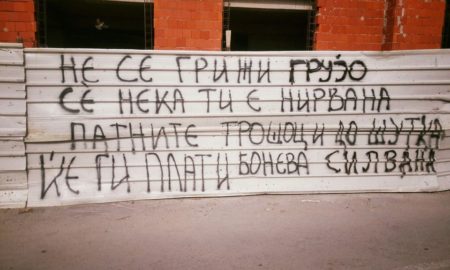 НЕ СЕ ГРИЖИ ГРУЈО
СЕ НЕКА ТИ Е НИРВАНА
ПАТНИТЕ ТРОШОЦИ ДО ШУТКА
ЌЕ ГИ ПЛАТИ БОНЕВА СИЛВАНА